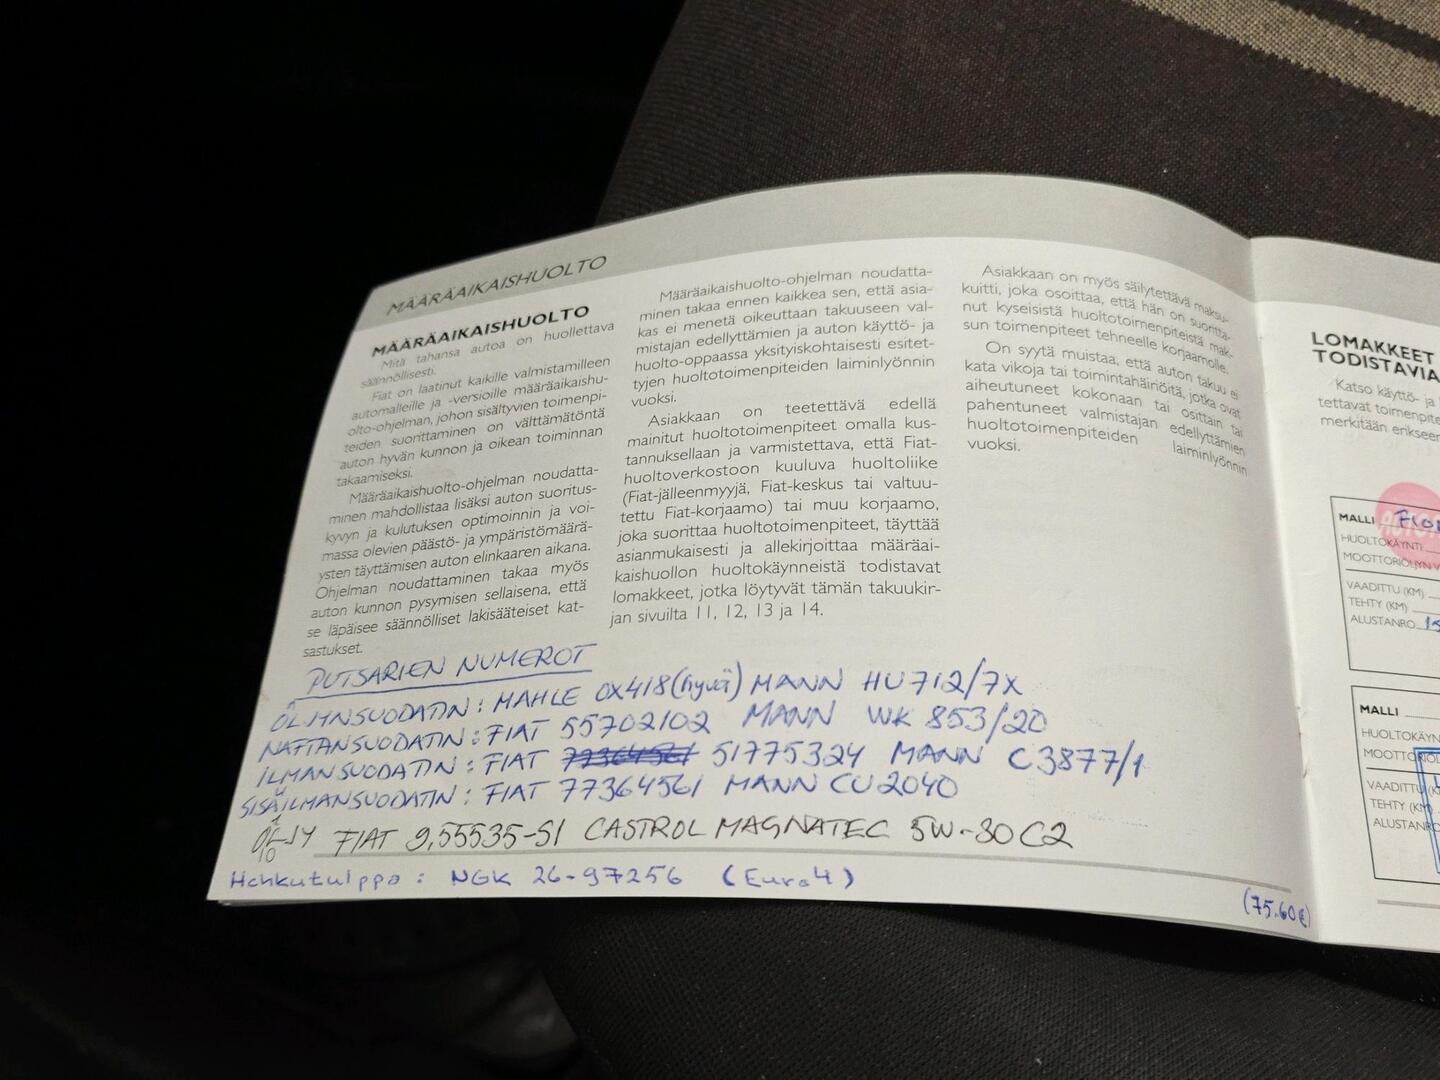 MÄÄRÄAIKAISHUOLTO
MÄÄRÄAIKAISHUOLTO
Mitä tahansa autoa on huollettava
säännöllisesti.
Fiat on laatinut kaikille valmistamilleen
automalleille ja -versioille määräaikaishu-
olto-ohjelman, johon sisältyvien toimenpi-
teiden suorittaminen on välttämätöntä
auton hyvän kunnon ja oikean toiminnan
takaamiseksi.
Määräaikaishuolto-ohjelman noudatta-
minen mahdollistaa lisäksi auton suoritus-
kyvyn ja kulutuksen optimoinnin ja voi-
massa olevien päästö- ja ympäristömäärä-
ysten täyttämisen auton elinkaaren aikana.
Ohjelman noudattaminen takaa myös
auton kunnon pysymisen sellaisena, että
se läpäisee säännölliset lakisääteiset kat-
sastukset.
Määräaikaishuolto-ohjelman noudatta-
minen takaa ennen kaikkea sen, että asia-
kas ei menetä oikeuttaan takuuseen val-
mistajan edellyttämien ja auton käyttö- ja
huolto-oppaassa yksityiskohtaisesti esitet-
tyjen huoltotoimenpiteiden laiminlyönnin
vuoksi.
Asiakkaan on teetettävä edellä
mainitut huoltotoimenpiteet omalla kus-
tannuksellaan ja varmistettava, että Fiat-
huoltoverkostoon kuuluva huoltoliike
(Fiat-jälleenmyyjä, Fiat-keskus tai valtuu-
tettu Fiat-korjaamo) tai muu korjaamo,
joka suorittaa huoltotoimenpiteet, täyttää
asianmukaisesti ja allekirjoittaa määräai-
kaishuollon huoltokäynneistä todistavat
lomakkeet, jotka löytyvät tämän takuukir-
jan sivuilta 11, 12, 13 ja 14.
Asiakkaan on myös säilytettävä maksu-
kuitti, joka osoittaa, että hän on suoritta-
nut kyseisistä huoltotoimenpiteistä mak-
sun toimenpiteet tehneelle korjaamolle.
On syytä muistaa, että auton takuu ei
kata vikoja tai toimintahäiriöitä, jotka ovat
aiheutuneet kokonaan tai osittain tai
pahentuneet valmistajan edellyttämien
huoltotoimenpiteiden laiminlyönnin
vuoksi.
PUTSARIEN NUMEROT
ÖLJYNSUODATIN: MAHLE OX418 (hyvä) MANN HU712/7X
NAFTANSUODATIN: FIAT 55702102 MANN WK 853/20
ILMANSUODATIN: FIAT 77364561 51775324 MANN C3877/1
SISÄILMANSUODATIN: FIAT 77364561 MANN CU2040
FIAT 9,55535-S1 CASTROL MAGNATEC 5W-30 C2
Hehkutulppa: NGK 26-97256 (Euro4)
(75.60€)
LOMAKKEET
TODISTAVIA
Katso käyttö- ja
tettavat toimenpite
merkitään erikseen
MALLI
HUOLTOKÄYNTI
MOOTTORIÖLJYN V
VAADITTU (KM)
TEHTY (KM)
ALUSTANRO
MALLI
HUOLTOKÄYN
MOOTTO
VAADITTU (K
TEHTY (KM)
ALUSTANRO